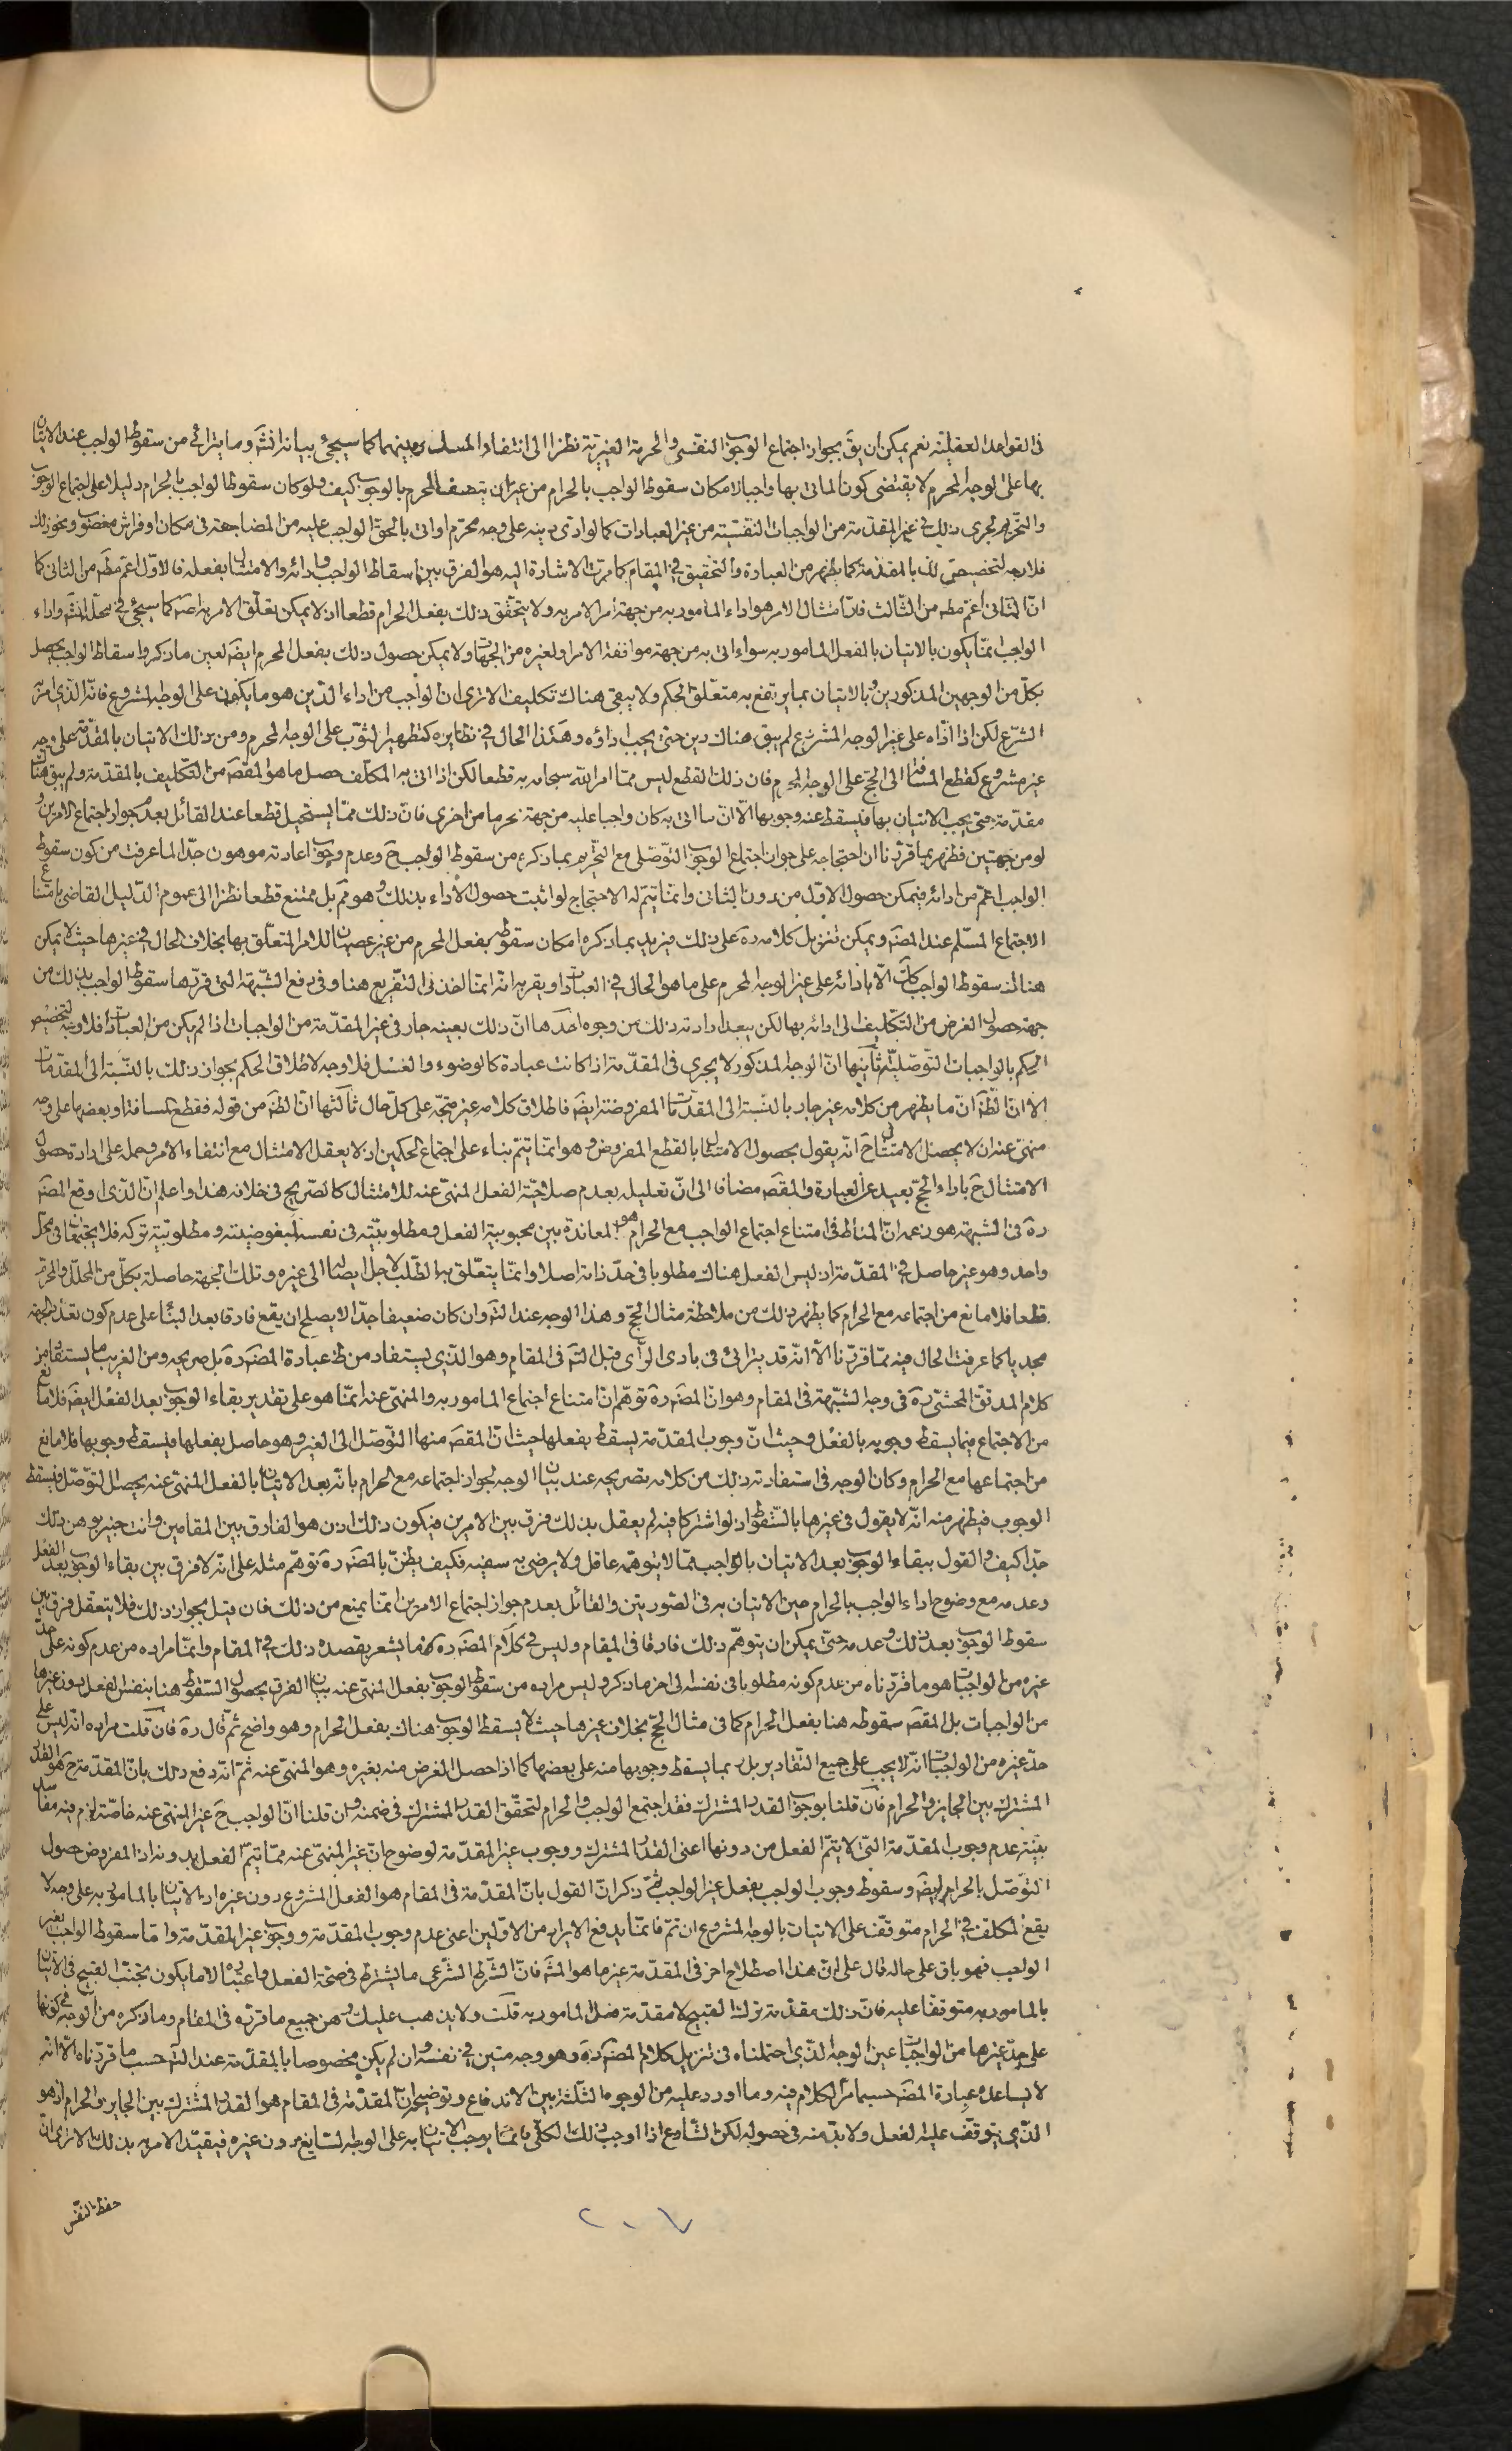 في القواعد العقلية نعم يمكن ان يق بجواز اجتماع الوجوب النفسي والحرمة الغيرية نظرا الى انتفاء المسك بينهما كما سيجئ بيانه انش وما يترائي من سقوط الواجب عند الاتيان
بها على الوجه المحرم لا يقتضى كون الماتى بها واجبا لامكان سقوط الواجب بالحرام من غير ان يتصف المحرم بالوجوب كيف ولو كان سقوط الواجب بالحرام دليلا على اجتماع الوجوب
والتحريم لجرى ذلك في غير المقدمة من الواجبات النفسية من غير العبادات كما لو ادى دينه على وجه محرم او اتى بالحق الواجب عليه من المضاجعة في مكان او فراش مغصوب ونحو ذلك
فلا وجه لتخصيص لذلك بالمقدمة كما يظهر من العبارة والتحقيق في المقام كما مرت الاشارة اليه هو الفرق بين اسقاط الواجب وادائه والامتثال بفعله فالاول اعم مطم من الثاني كما
ان الثاني اعم مطم من الثالث فان امتثال الامر هو اداء المامور به من جهة امر الامر به ولا يتحقق ذلك بفعل الحرام قطعا اذ لا يمكن تعلق الامر به اصه كما سيجئ في محله انش واداء
الواجب انما يكون بالاتيان بالفعل المامور به سواء اتى به من جهة موافقة الامر او لغيره من الجهات ولا يمكن حصول ذلك بفعل المحرم ايضه لعين ما ذكر واسقاط الواجب يحصل
بكل من الوجهين المذكورين وبالاتيان بما يرتفع به متعلق الحكم ولا يبقى هناك تكليف الا ترى ان الواجب من اداء الدين هو ما يكون على الوجه المشروع فانه الذي امر به
الشرع لكن اذا اداه على غير الوجه المشروع لم يبق هناك دين حتى يجب اداؤه وهكذا الحال في نظايره كتطهير الثوب على الوجه المحرم ومن ذلك الاتيان بالمقدمة على وجه
غير مشروع كقطع المسافة الى الحج على الوجه المحرم فان ذلك القطع ليس مما امر الله سبحانه به قطعا لكن اذا اتى به المكلف حصل ما هو المقصه من التكليف بالمقدمة ولم يبق هناك
مقدمة حتى يجب الاتيان بها فيسقط عنه وجوبها الا ان ما اتى به كان واجبا عليه من جهة محرما من اخرى فان ذلك مما يستحيل قطعا عند القائل بعدم جواز اجتماع الامرين و
لو من جهتين فظهر بما قررنا ان احتجاجه على جواز اجتماع الوجوب التوصلى مع التحريم بما ذكره من سقوط الواجب ح وعدم وجوب اعادته موهون جدا لما عرفت من كون سقوط
الواجب اعم من ادائه فيمكن حصول الاول من دون الثانى وانما يتم له الاحتجاج لو اثبت حصول الاداء بذلك وهو قم بل ممتنع قطعا نظرا الى عموم الدليل القاضى بامتناع
الاجتماع المسلم عند المصه ويمكن تنزيل كلامه ره على ذلك فيريد بما ذكره امكان سقوطه بفعل المحرم من غير عصيان للامر المتعلق بها بخلاف الحال في غيرها حيث لا يمكن
هناك سقوط الواجب كك الا بادائه على غير الوجه المحرم على ما هو الحال في العبادات ويقربه انه انما اخذ في التفريع هنا وفى رفع الشبهة التى قررها سقوط الواجب بذلك من
جهة حصول الغرض من التكليف لا ادائه بها لكن يبعد ارادته ذلك من وجوه احدها ان ذلك بعينه جار في غير المقدمة من الواجبات اذا لم يكن من العبادات فلا وجه لتخصيص
الحكم بالواجبات التوصلية ثانيها ان الوجه المذكور لا يجرى في المقدمة اذا كانت عبادة كالوضوء والغسل فلا وجه لاطلاق الحكم بجواز ذلك بالنسبة الى المقدمات
الا ان الظه ان ما يظهر من كلامه غير جار بالنسبة الى المقدمات المفروضة ايضه فاطلاق كلامه غير متجه على كل حال ثالثها ان الظه من قوله فقطع المسافة او بعضها على وجه
منهى عنه ان لا يحصل الامتثال ح انه يقول بحصول الامتثال بالقطع المفروض وهو انما يتم بناء على اجتماع الحكمين اذ لا يعقل الامتثال مع انتفاء الامر وحمله على ارادة حصول
الامتثال ح باداء الحج بعيد عن العبارة والمقصه مضافا الى ان تعليله بعدم صلاحية الفعل المنهى عنه للامتثال كالصريح في خلافه هذا واعلم ان الذى اوقع المصه
ره في الشبهة هو زعمه ان المناط في امتناع اجتماع الواجب مع الحرام هو المعاندة بين محبوبية الفعل ومطلوبيته في نفسه لمبغوضيته ومطلوبية تركه فلا يجتمعان في محل
واحد وهو غير حاصل في المقدمة اذ ليس الفعل هناك مطلوبا في حد ذاته اصلا وانما يتعلق به الطلب لاجل ايصاله الى غيره وتلك الجهة حاصلة بكل من المحلل والمحرم
قطعا فلا مانع من اجتماعه مع الحرام كما يظهر ذلك من ملاحظة مثال الحج وهذا الوجه عند التم وان كان ضعيفا جدا لا يصلح ان يقع فارقا بعد البناء على عدم كون تعدد الجهة
مجديا كما عرفت الحال فيه مما قررنا الا انه قد يترائى في بادى الراى قبل التم في المقام وهو الذى يستفاد من ظ عبارة المصه ره بل صريحه ومن الغريب ما يستفاد من
كلام المدقق المحشى ره في وجه الشبهة في المقام وهو ان المصه ره توهم ان امتناع اجتماع المامور به والمنهى عنه انما هو على تقدير بقاء الوجوب بعد الفعل ايضه فلا مانع
من الاجتماع فيما يسقط وجوبه بالفعل وحيث ان وجوب المقدمة يسقط بفعلها حيث ان المقصه منها التوصل الى الغير وهو حاصل بفعلها فيسقط وجوبها فلا مانع
من اجتماعها مع الحرام وكان الوجه في استفادته ذلك من كلامه تصريحه عند بيان الوجه لجواز اجتماعه مع الحرام بانه بعد الاتيان بالفعل المنهى عنه يحصل التوصل فيسقط
الوجوب فيظهر منه انه لا يقول في غيرها بالسقوط اذ لو اشتركا فيه لم يعقل بذلك فرق بين الامرين فيكون ذلك اذن هو الفارق بين المقامين وانت خبير بوهن ذلك
جدا كيف والقول ببقاء الوجوب بعد الاتيان بالواجب مما لا يتوهمه عاقل ولا يرضى به سفيه فكيف يظن بالمصه ره توهم مثله على انه لا فرق بين بقاء الوجوب بعد الفعل
وعدمه مع وضوح اداء الواجب بالحرام حين الاتيان به في الصورتين والقائل بعدم جواز اجتماع الامرين انما يمنع من ذلك فان قيل بجواز ذلك فلا يتعقل فرق بين
سقوط الوجوب بعد ذلك وعدمه حتى يمكن ان يتوهم ذلك فارقا في المقام وليس في كلام المصه ره ما يشعر بقصده ذلك في المقام وانما مراده من عدم كونه على حد
غيره من الواجبات هو ما قررناه من عدم كونه مطلوبا في نفسه الى اخر ما ذكر وليس مراده من سقوط الوجوب بفعل المنهى عنه بيان الفرق بحصول السقوط هنا بنفس الفعل دون غيرها
من الواجبات بل المقصه سقوطه هنا بفعل الحرام كما في مثال الحج بخلاف غيرها حيث لا يسقط الوجوب هناك بفعل الحرام وهو واضح ثم قال ره فان قلت مراده انه ليس على
حد غيره من الواجبات انه لا يجب على جميع التقادير بل ربما يسقط وجوبها منه على بعضها كما اذا حصل الغرض منه بغيره وهو المنهى عنه ثم انه دفع ذلك بان المقدمة ح هو القدر
المشترك بين الجايز والحرام فان قلنا بوجوب القدر المشترك فقد اجتمع الواجب والحرام لتحقق القدر المشترك في ضمنه وان قلنا ان الواجب ح غير المنهى عنه خاصة لزم فيه مفاسد
بينة عدم وجوب المقدمة التى لا يتم الفعل من دونها اعنى القدر المشترك ووجوب غير المقدمة لوضوح ان غير المنهى عنه مما يتم الفعل بدونه اذ المفروض حصول
التوصل بالحرام ايضه وسقوط وجوب الواجب بفعل غير الواجب ثم ذكر ان القول بان المقدمة في المقام هو الفعل المشروع دون غيره اذ الاتيان بالمامور به على وجه لا
يقع المكلف في الحرام متوقف على الاتيان بالوجه المشروع ان تم فانما يدفع الايراد من الاولين اعنى عدم وجوب المقدمة ووجوب غير المقدمة واما سقوط الواجب بغير
الواجب فهو باق على حاله قال على ان هذا اصطلاح اخر في المقدمة غير ما هو المشه فان الشرط الشرعى ما يشترط في صحة الفعل واعتباره لا ما يكون تجنب القبيح في الاتيان
بالمامور به متوقفا عليه فان ذلك مقدمة ترك القبيح لا مقدمة فعل المامور به قلت ولا يذهب عليك وهن جميع ما قرره في المقام وما ذكره من الوجه في كونها
على حد غيرها من الواجبات عين الوجه الذي احتملناه في تنزيل كلام المصه ره وهو وجه متين في نفسه وان لم يكن مخصوصا بالمقدمة عند التم حسب ما قررناه الا انه
لا يساعده عبارة المصه حسبما مر الكلام فيه وما اورد عليه من الوجوه الثلثة بين الاندفاع وتوضيحه ان المقدمة في المقام هو القدر المشترك بين الجايز والحرام اذ هو
الذي يتوقف عليه الفعل ولا بد منه في حصوله لكن الشارع اذا اوجب ذلك الكلى فانما يوجب الاتيان به على الوجه السايغ دون غيره فيقيد الامر به بذلك الا ترى ان
حفظ النفس
٢٠٧